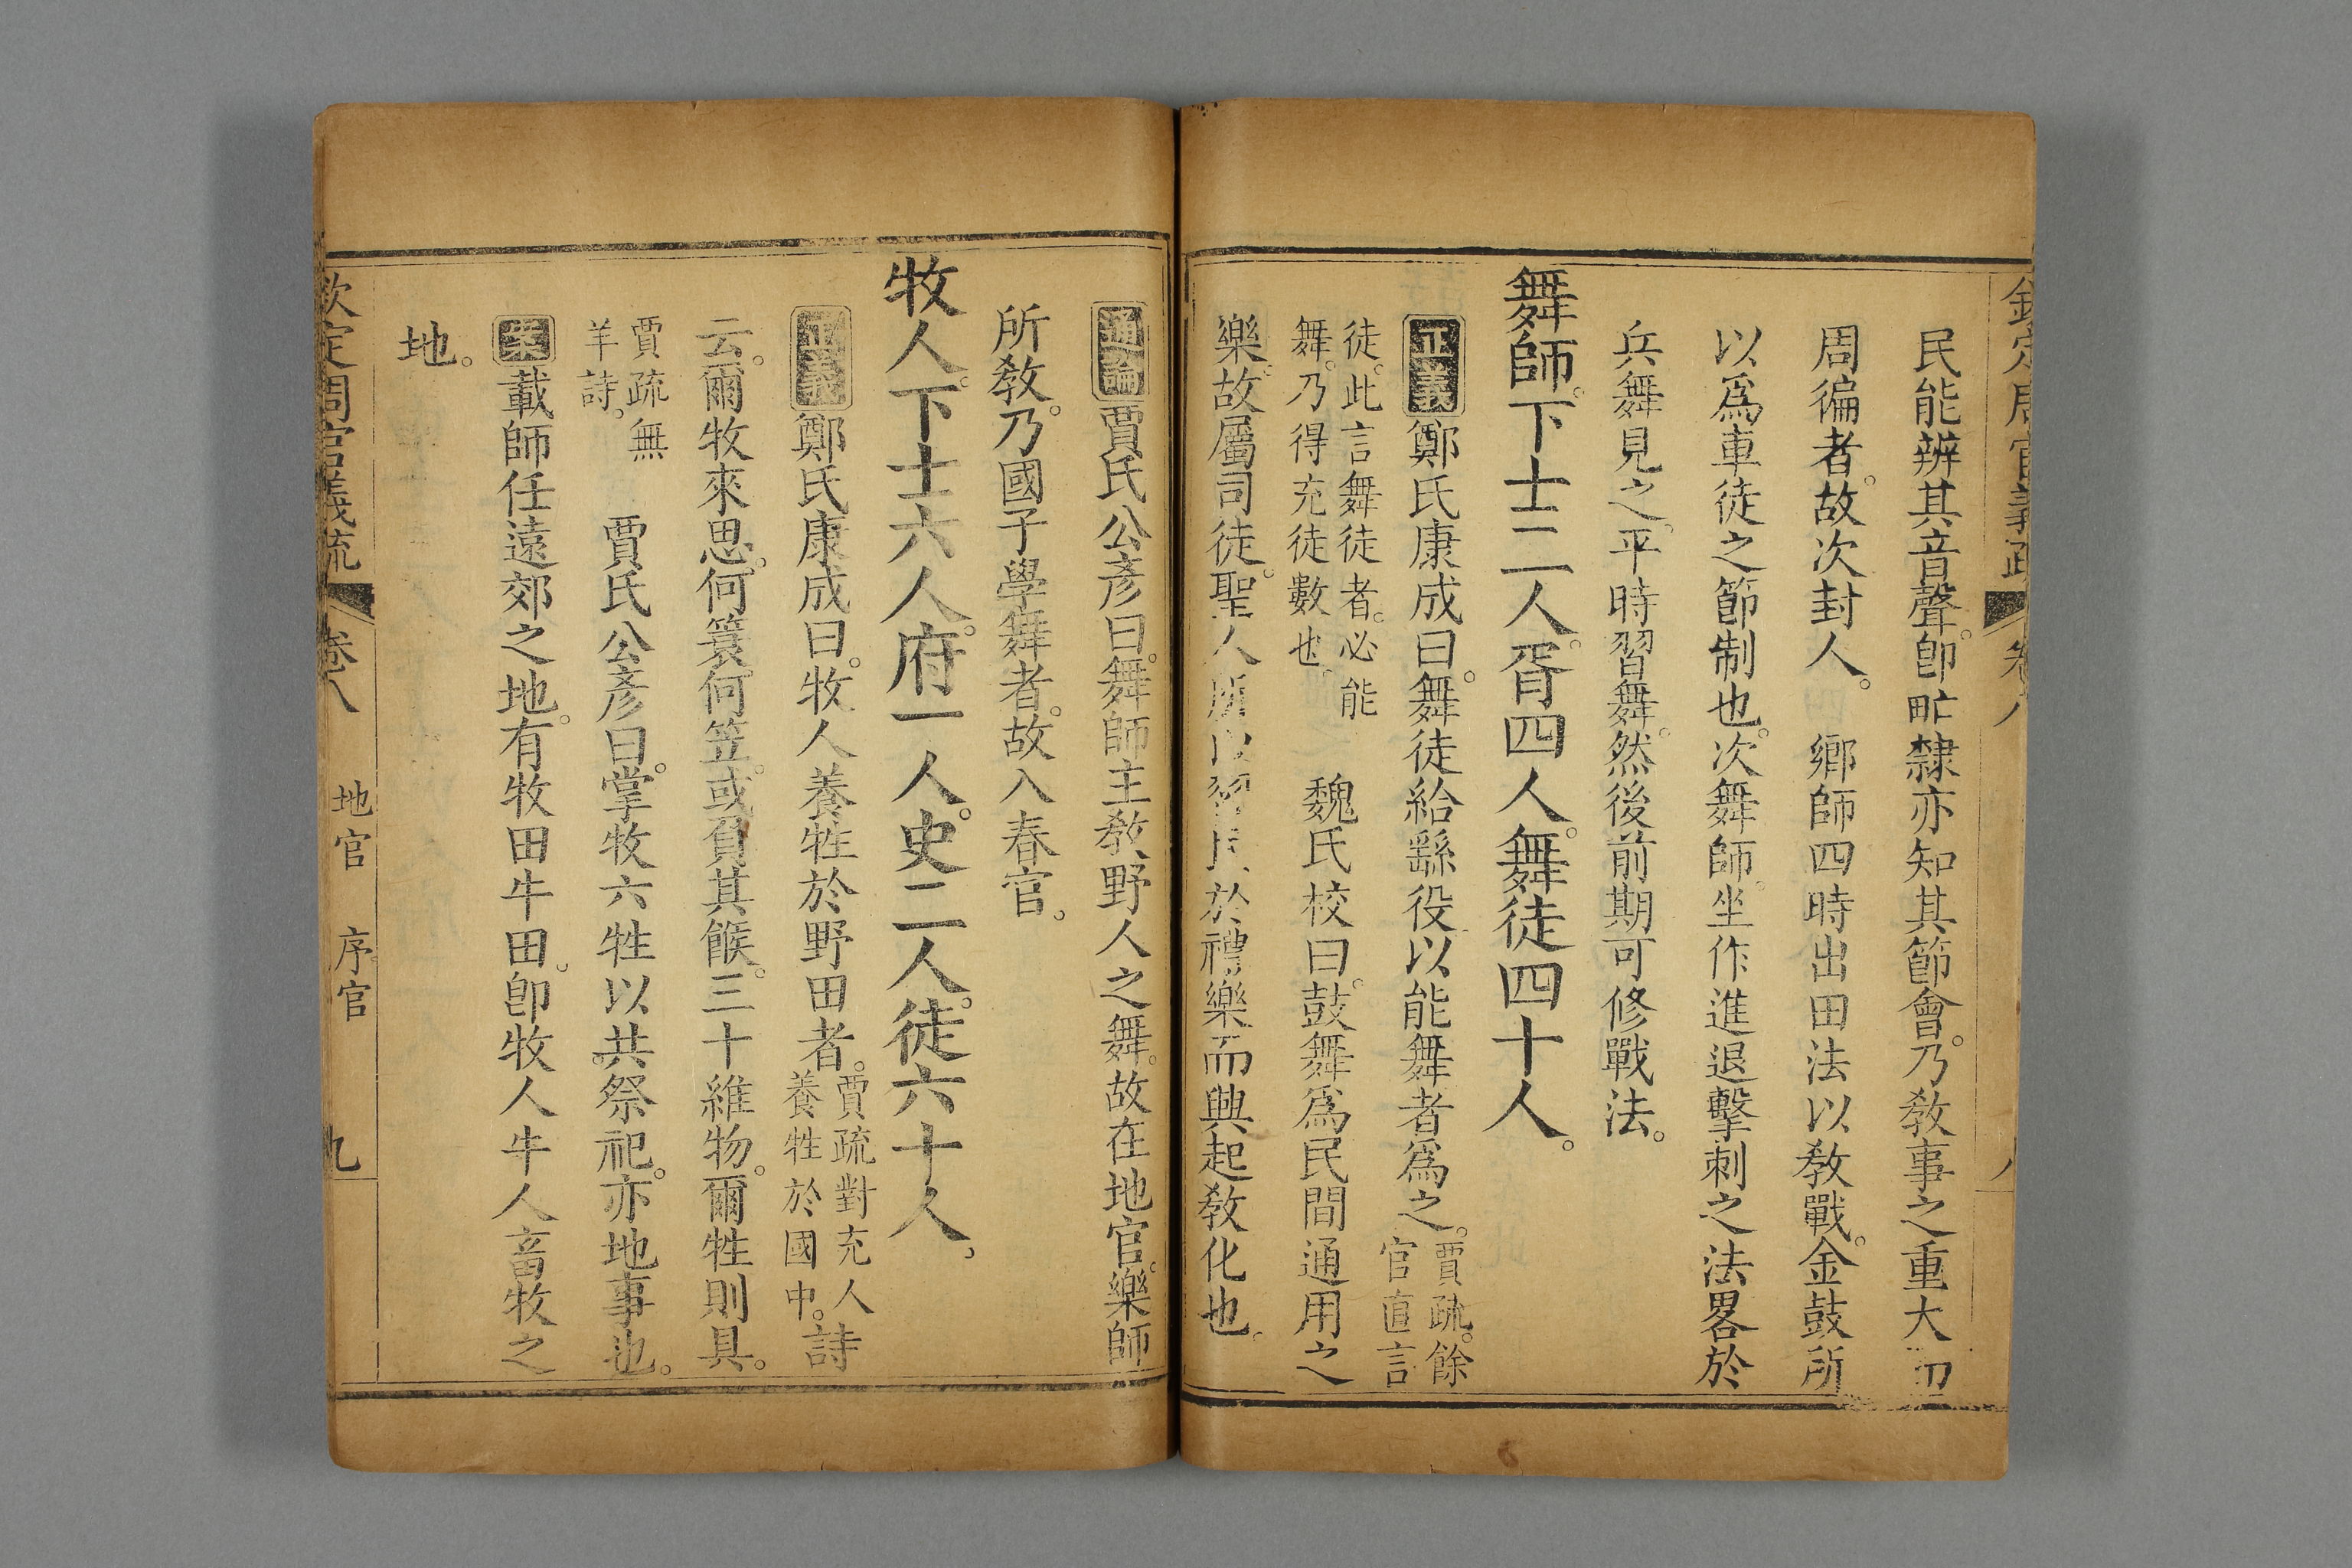 欽定周官義疏 卷八
民能辨其音聲。卽甿隸亦知其節會。乃敎事之重大
周徧者。故次封人。 鄉師四時出田法以敎戰。金鼓所
以爲車徒之節制也。次舞師。坐作進退擊刺之法畧於
兵舞見之。平時習舞。然後前期可修戰法。
舞師。下士二人。胥四人。舞徒四十人。
正義鄭氏康成曰。舞徒給繇役以能舞者爲之。賈疏。餘
官直言
徒。此言舞徒者。必能
舞。乃得充徒數也。 魏氏校曰。鼓舞爲民間通用之
樂。故屬司徒。聖人所以習民於禮樂而興起敎化也。
通論賈氏公彥曰。舞師主敎野人之舞。故在地官。樂師
所敎。乃國子學舞者。故入春官。
牧人。下士六人。府一人。史二人。徒六十人。
正義鄭氏康成曰。牧人養牲於野田者。賈疏對充人
養牲於國中。詩
云。爾牧來思。何蓑何笠。或負其餱。三十維物。爾牲則具。
賈疏無
羊詩。 賈氏公彥曰。掌牧六牲以共祭祀。亦地事也。
案載師任遠郊之地。有牧田牛田。卽牧人牛人畜牧之
地。
欽定周官義疏 卷八 地官 序官 九